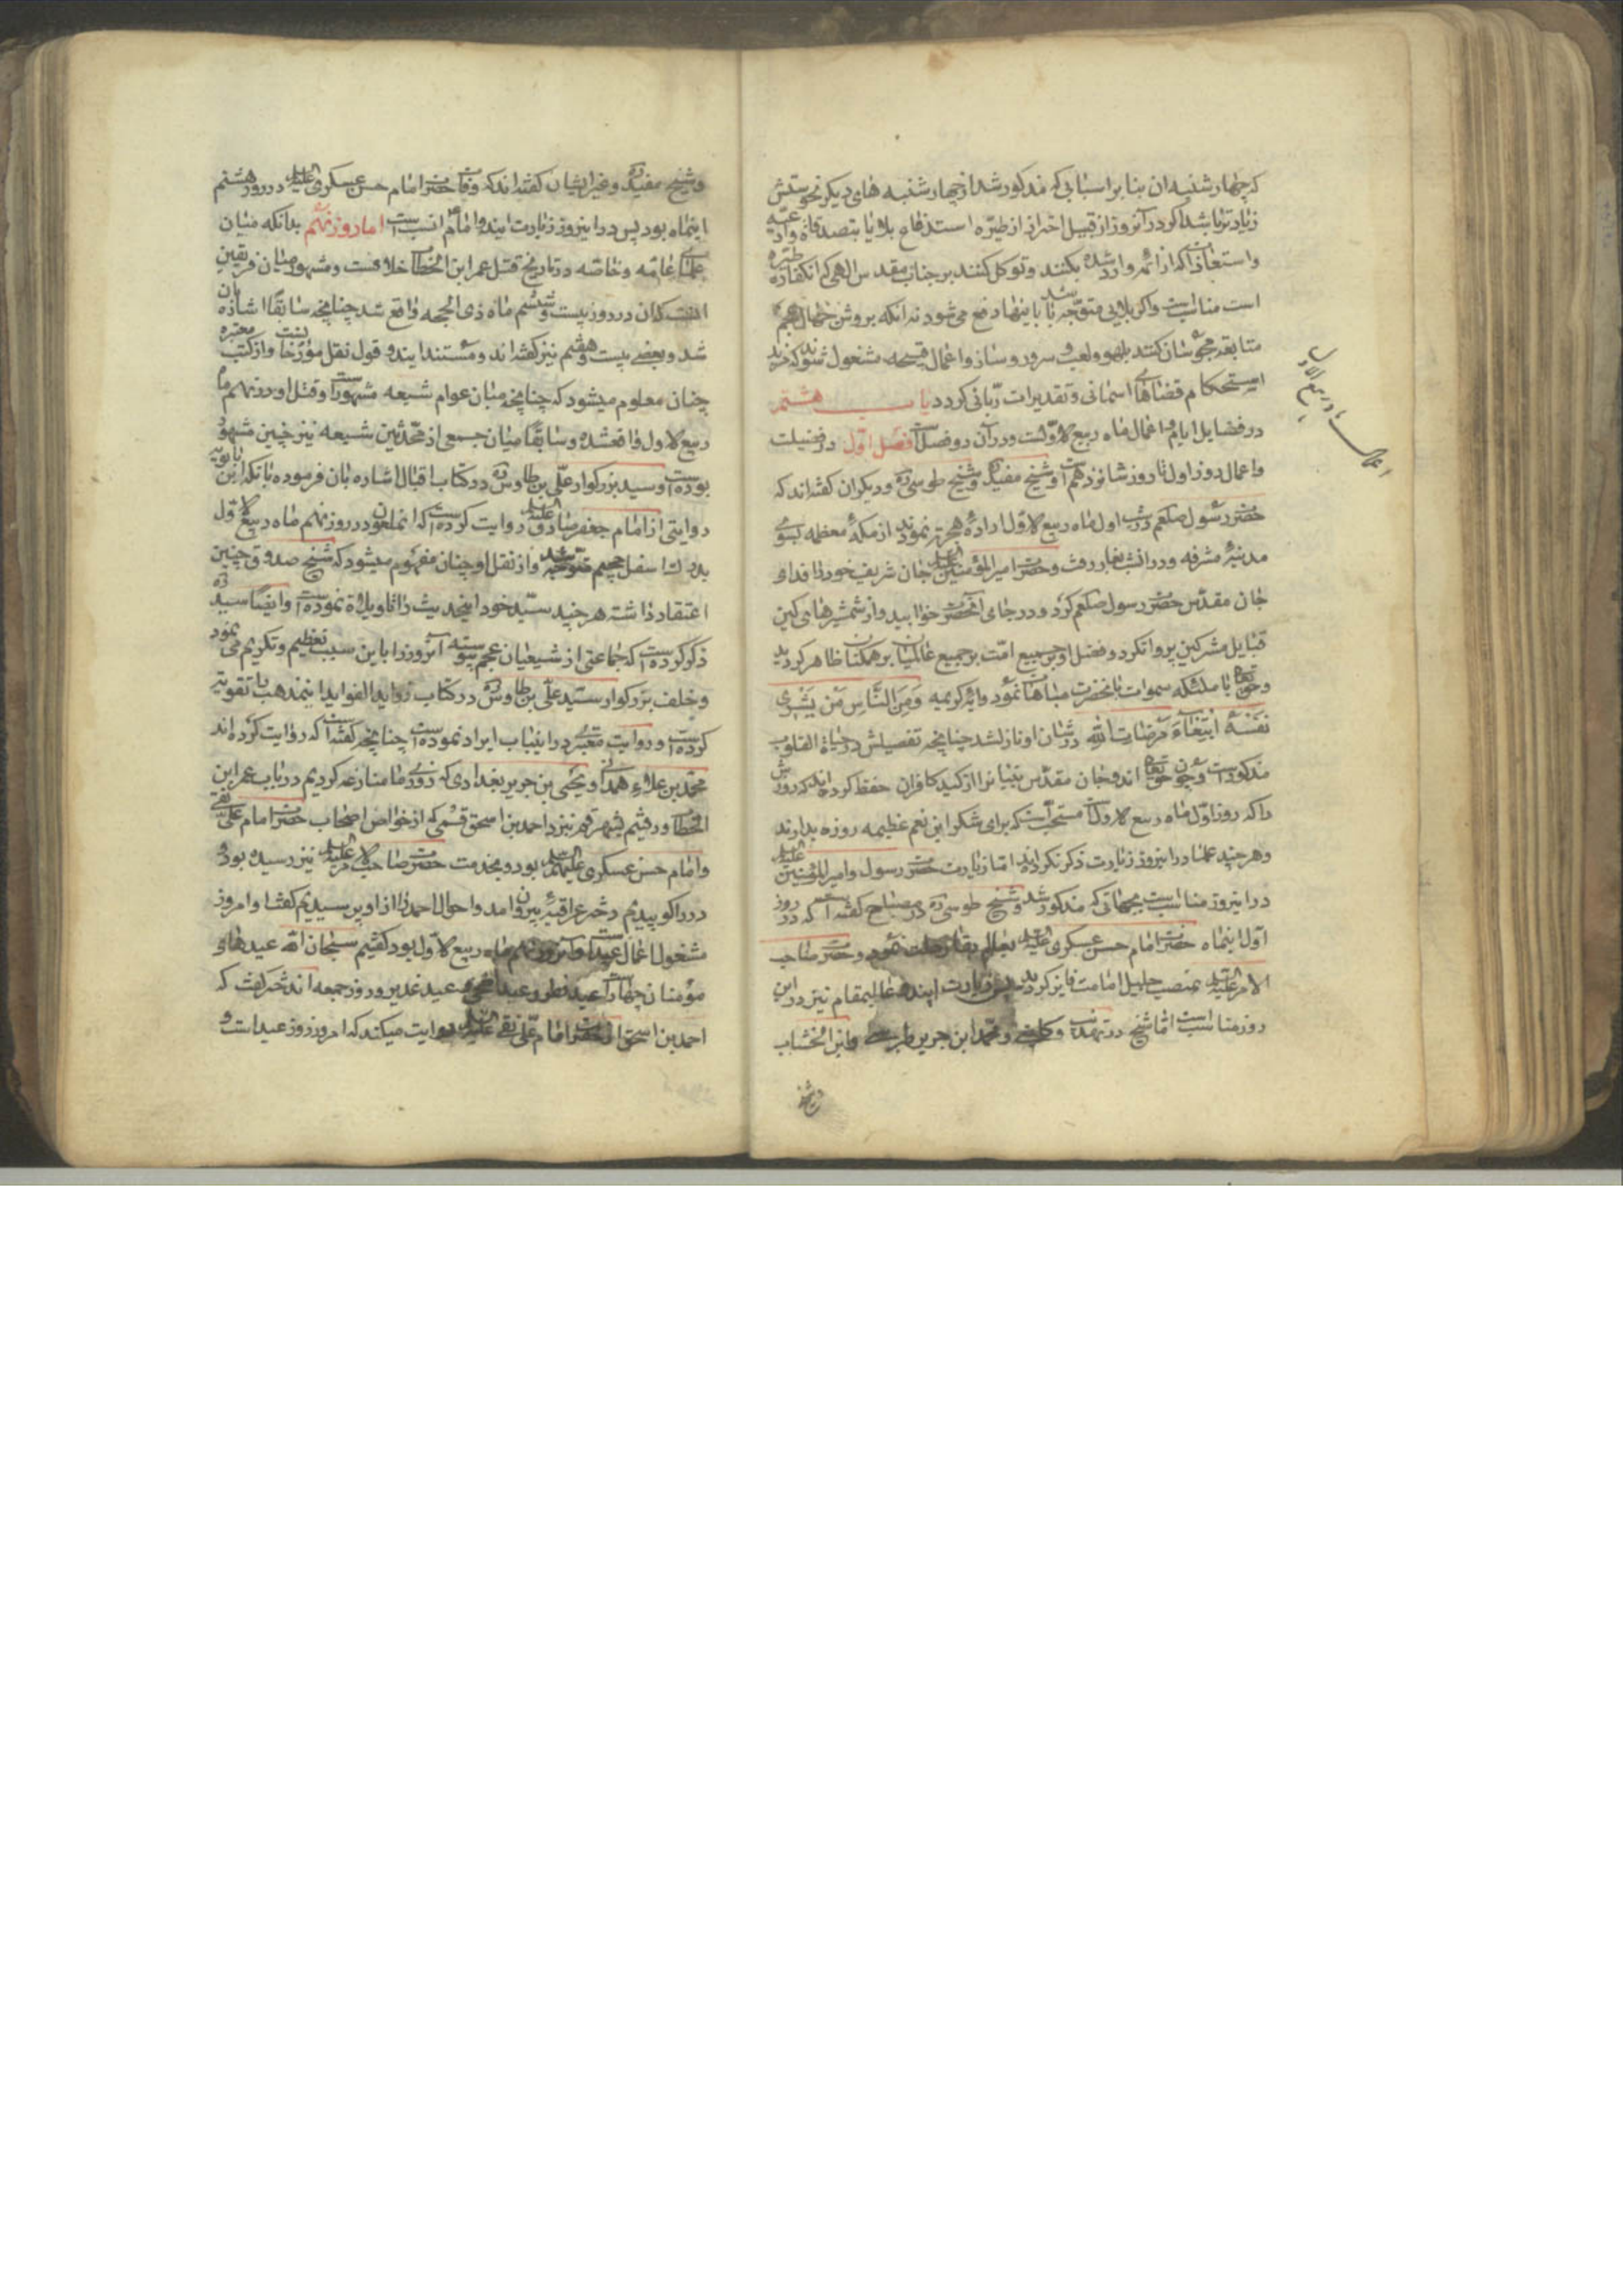 که چهارشنبه ان بنا بر اسبابی که مذکور شد از چهارشنبه های دیکر نحوستش
زیادتر باشد اکر در آنروز از قبیل احتراز از طیره است دفاع بلایا بتصدقات و ادعیه
و استعاذات که از ائمه وارد شده بکنند و توکل کنند بر جناب مقدس الهی که انکفاره طیره
است مناسب است و اکر بلایی متوجه باشد باینها دفع می شود نه انکه بروش جهال عجم
متابعة مجوسان کنند بلهو و لعب و سرور و ساز و اعمال قبیحه مشغول شوند که مزید
استحکام قضاهای اسمانی و تقدیرات ربانی کردد باب هشتم
در فضایل ایام و اعمال ماه ربیع الاولست و در آن دو فصلست فصل اول در فضیلت
و اعمال روز اول تا روز شانزدهم است و شیخ مفید ره و شیخ طوسی ره و دیکران کفته اند که
حضرت رسول صلعم در شب اول ماه ربیع الاول اراده هجرت نمودند از مکه معظمه بسوی
مدینه مشرفه و در انشب بغار رفت و حضرت امیرالمؤمنین علیه السلام جان شریف خود را فدای
جان مقدس حضرت رسول صلعم کرد و در جای آنحضرت خوابید و از شمشیرهای کین
قبایل مشرکین پروا نکرد و فضل او بر جمیع امت بر جمیع عالمیان بر همکنان ظاهر کردید
و حق تعالی با ملئکه سموات بانحضرت مباهات نمود و ایه کریمه وَمِنَ النَّاسِ مَن یَشْرِی
نَفْسَهُ ابْتِغَاءَ مَرْضَاتِ اللَّهِ در شان او نازلشد چنانچه تفصیلش در حیاة القلوب
مذکور است و چون حق تعالی اندو جان مقدس بنیانرا از کید کافران حفظ کرد اند که در روزش
را که روز اول ماه ربیع الاولست مستحبست که برای شکر این نعم عظیمه روزه بدارند
و هر چند علما در اینروز زیارت ذکر نکرده اند اما زیارت حضرت رسول و امیرالمؤمنین علیه السلام
در اینروز مناسبست بجهاتی که مذکور شد و شیخ طوسی ره در مصباح کفته است که در روز
اول اینماه حضرت امام حسن عسکری علیه السلام بعالم بقا رحلت نمود و حضرت صاحب
الامر علیه السلام بمنصب جلیل امامت فایز کردید پس زیارت ایندو عالیمقام نیز در این
روز مناسب است اما شیخ در تهذیب و کلینی و محمد ابن جریر طبری و ابن الخشاب
و شیخ
اعمال ماه ربیع الاول
و شیخ مفید ره و غیر ایشان کفته اند که وفات حضرت امام حسن عسکری علیه السلام در روز هشتم
اینماه بود پس در اینروز زیارت ایندو امام انسب است اما روز نهم بدانکه میان
علمای عامه و خاصه در تاریخ قتل عمر ابن الخطاب خلافست و مشهور میان فریقین
انست که ان در روز بیست و ششم ماه ذی الحجه واقع شد چنانچه سابقا اشاره بان
شد و بعضی بیست و هفتم نیز کفته اند و مستند ایندو قول نقل مورخانست و از کتب معتبره
چنان معلوم میشود که چنانچه میان عوام شیعه مشهور است و قتل او در نهم ماه
ربیع الاول واقعشده و سابقا میان جمعی از محدثین شیعه نیز چنین مشهور
بوده است و سید بزرکوار علی بن طاوس ره در کتاب اقبال اشاره بان فرموده بانکه ابن بابویه
روایتی از امام جعفر صادق علیه السلام روایت کرده است که انملعون در روز نهم ماه ربیع الاول
بدرک اسفل جحیم متوجه شد و از نقل او چنان مفهوم میشود که شیخ صدوق چنین
اعتقاد داشته هر چند سید خود اینحدیث را تاویلات نموده است و ایضا سید ره
ذکر کرده است که جماعتی از شیعیان عجم پیوسته آنروز را باین سبب تعظیم و تکریم می نمود
و خلف بزرکوار سید علی بن طاوس ره در کتاب زواید الفواید اینمذهب را تقویت
کرده است و روایت معتبری در اینباب ایراد نموده است چنانچه کفته است که روایت کرده اند
محمد بن علاء همدانی و یحیی بن جریر بغدادی که روزی ما منازعه کردیم در باب عمر ابن
الخطاب و رفتیم بشهر قم نیز د احمد بن اسحق قمی که از خواص اصحاب حضرت امام علی نقی
و امام حسن عسکری علیهما السلام بود و بخدمت حضرت صاحب الامر علیه السلام نیز رسیده بود و
در را کوبیدیم دختر عراقیه بیرون امد و احوال احمد را از او پرسیدیم کفت او امروز
مشغول اعمال عید است و آنروز نهم ماه ربیع الاول بود کفتیم سبحان الله عیدهای
مؤمنان چهار است عید فطر و عید اضحی و عید غدیر و روز جمعه اند دختر کفت که
احمد بن اسحق از حضرت امام علی نقی علیه السلام روایت میکند که امروز روز عید است و